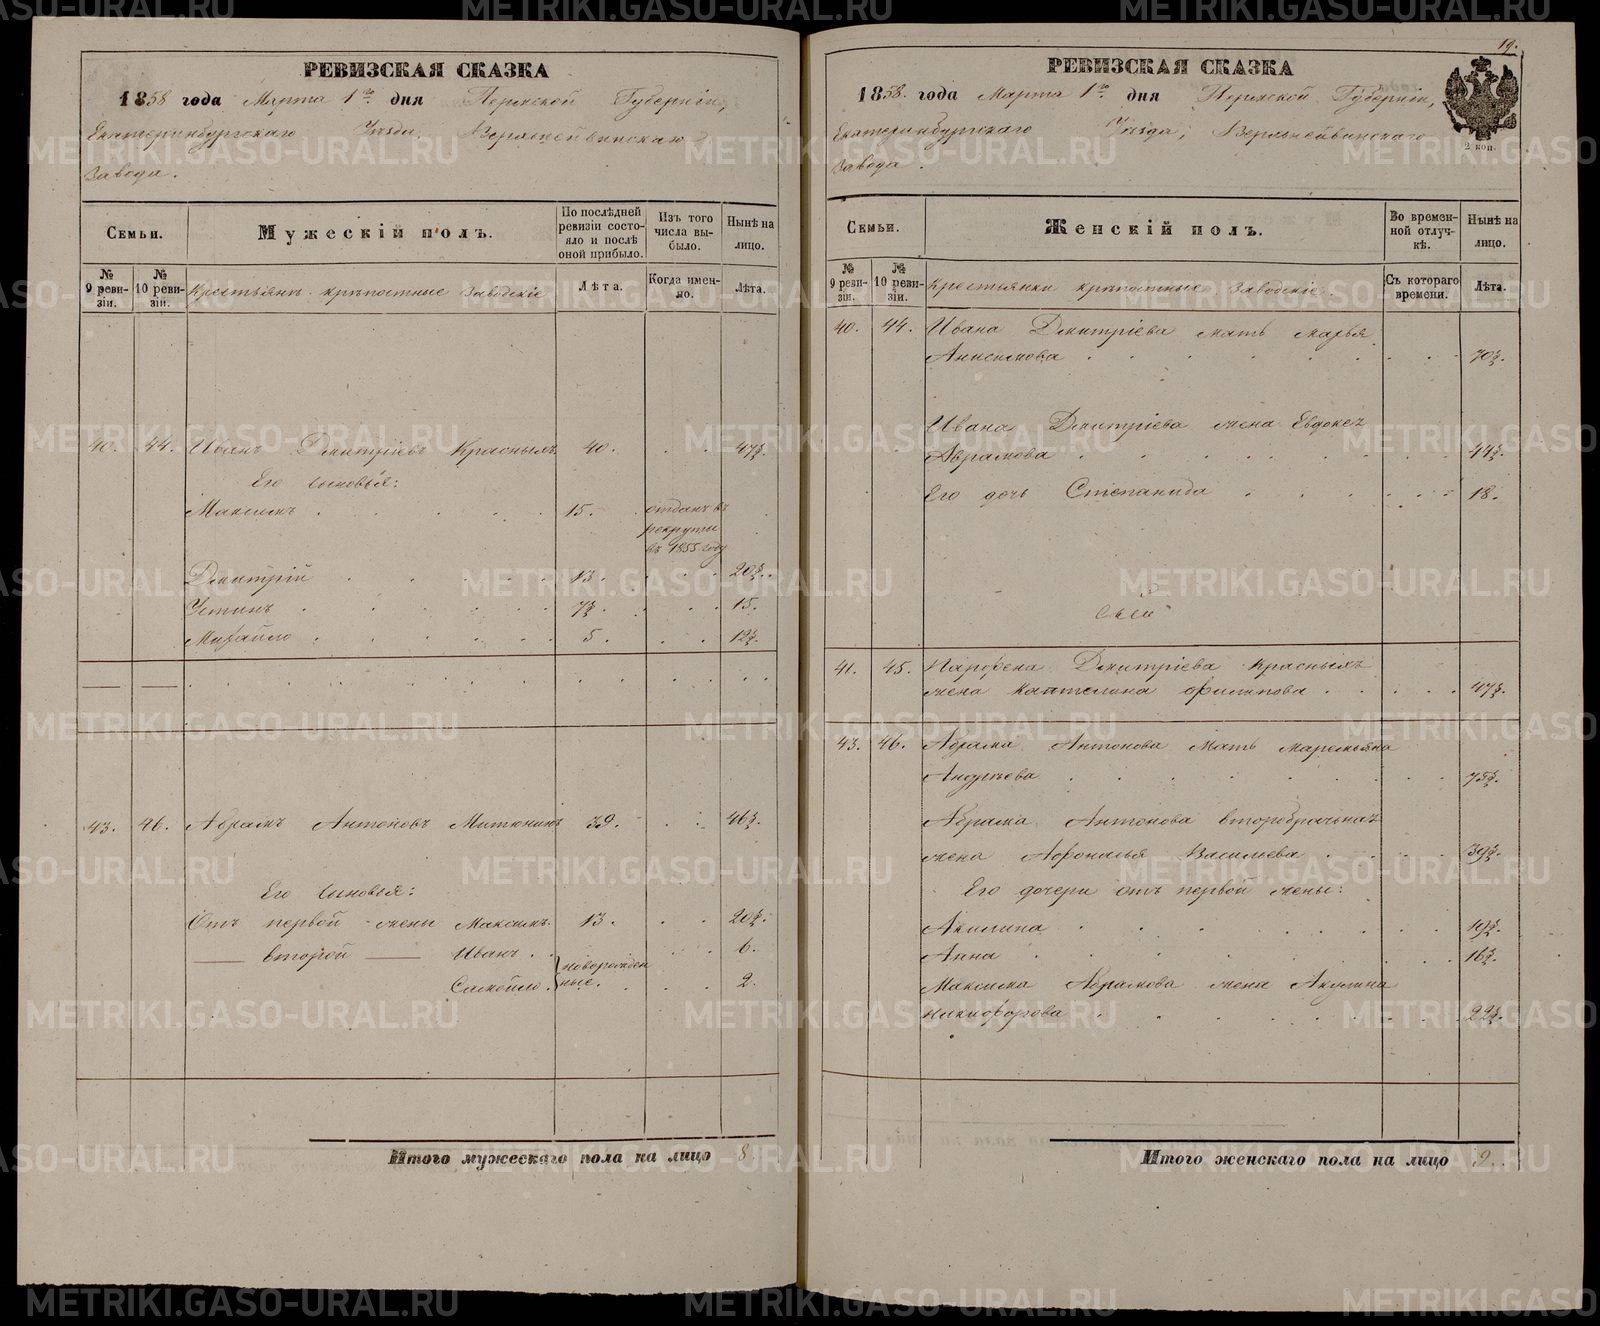 РЕВИЗСКАЯ СКАЗКА
1858 года Марта 1го дня Пермской Губерніи,
Екатеринбургскаго Уѣзда, Верхнейвинскаго
Завода.
Семьи.
Мужескій полъ.
По послѣдней ревизіи состояло и послѣ оной прибыло.
Изъ того числа выбыло.
Нынѣ на лицо.
№ 9 ревизіи.
№ 10 ревизіи.
Крестьянъ крѣпостные Заводскіе
Лѣта.
Когда именно.
Лѣта.
40. 44. Иванъ Дмитріевъ Красныхъ 40. 47½.
Его сыновья:
Максимъ 15. отданъ въ
рекруты
въ 1855 году
Дмитрій 13. 20½.
Устинъ 7½. 15.
Михайло 5. 12½.
43. 46. Абрамъ Антоновъ Митюнинъ 39. 46½.
Его сыновья:
Отъ первой жены Максимъ. 13. 20½.
второй Иванъ 6.
новорожден
Самойло. ные. 2.
Итого мужескаго пола на лицо 8.
19.
РЕВИЗСКАЯ СКАЗКА
1858. года Марта 1го дня Пермской Губерніи,
Екатеринбургскаго Уѣзда, Верхнейвинскаго
Завода.
2 коп.
Семьи.
Женскій полъ.
Во временной отлучкѣ.
Нынѣ на лицо.
№ 9 ревизіи.
№ 10 ревизіи.
Крестьянки крѣпостные Заводскіе.
Съ котораго времени.
Лѣта.
40. 44. Ивана Дмитріева мать Марья
Анисимова 70½.
Ивана Дмитріева жена Евдокея
Абрамова 44½.
Его дочь Степанида 18.
41. 45. Парфена Дмитріева Красныхъ
жена Каптелина Филипова 47½.
43. 46. Абрама Антонова Мать Маремьяна
Андреева 75½.
Абрама Антонова второбрачьная
жена Афонасья Васильева 39½.
Его дочери отъ первой жены:
Акилина 19½.
Анна 16½.
Максима Абрамова жена Акулина
Никифорова 22½.
Итого женскаго пола на лицо 9.
METRIKI.GASO-URAL.RU